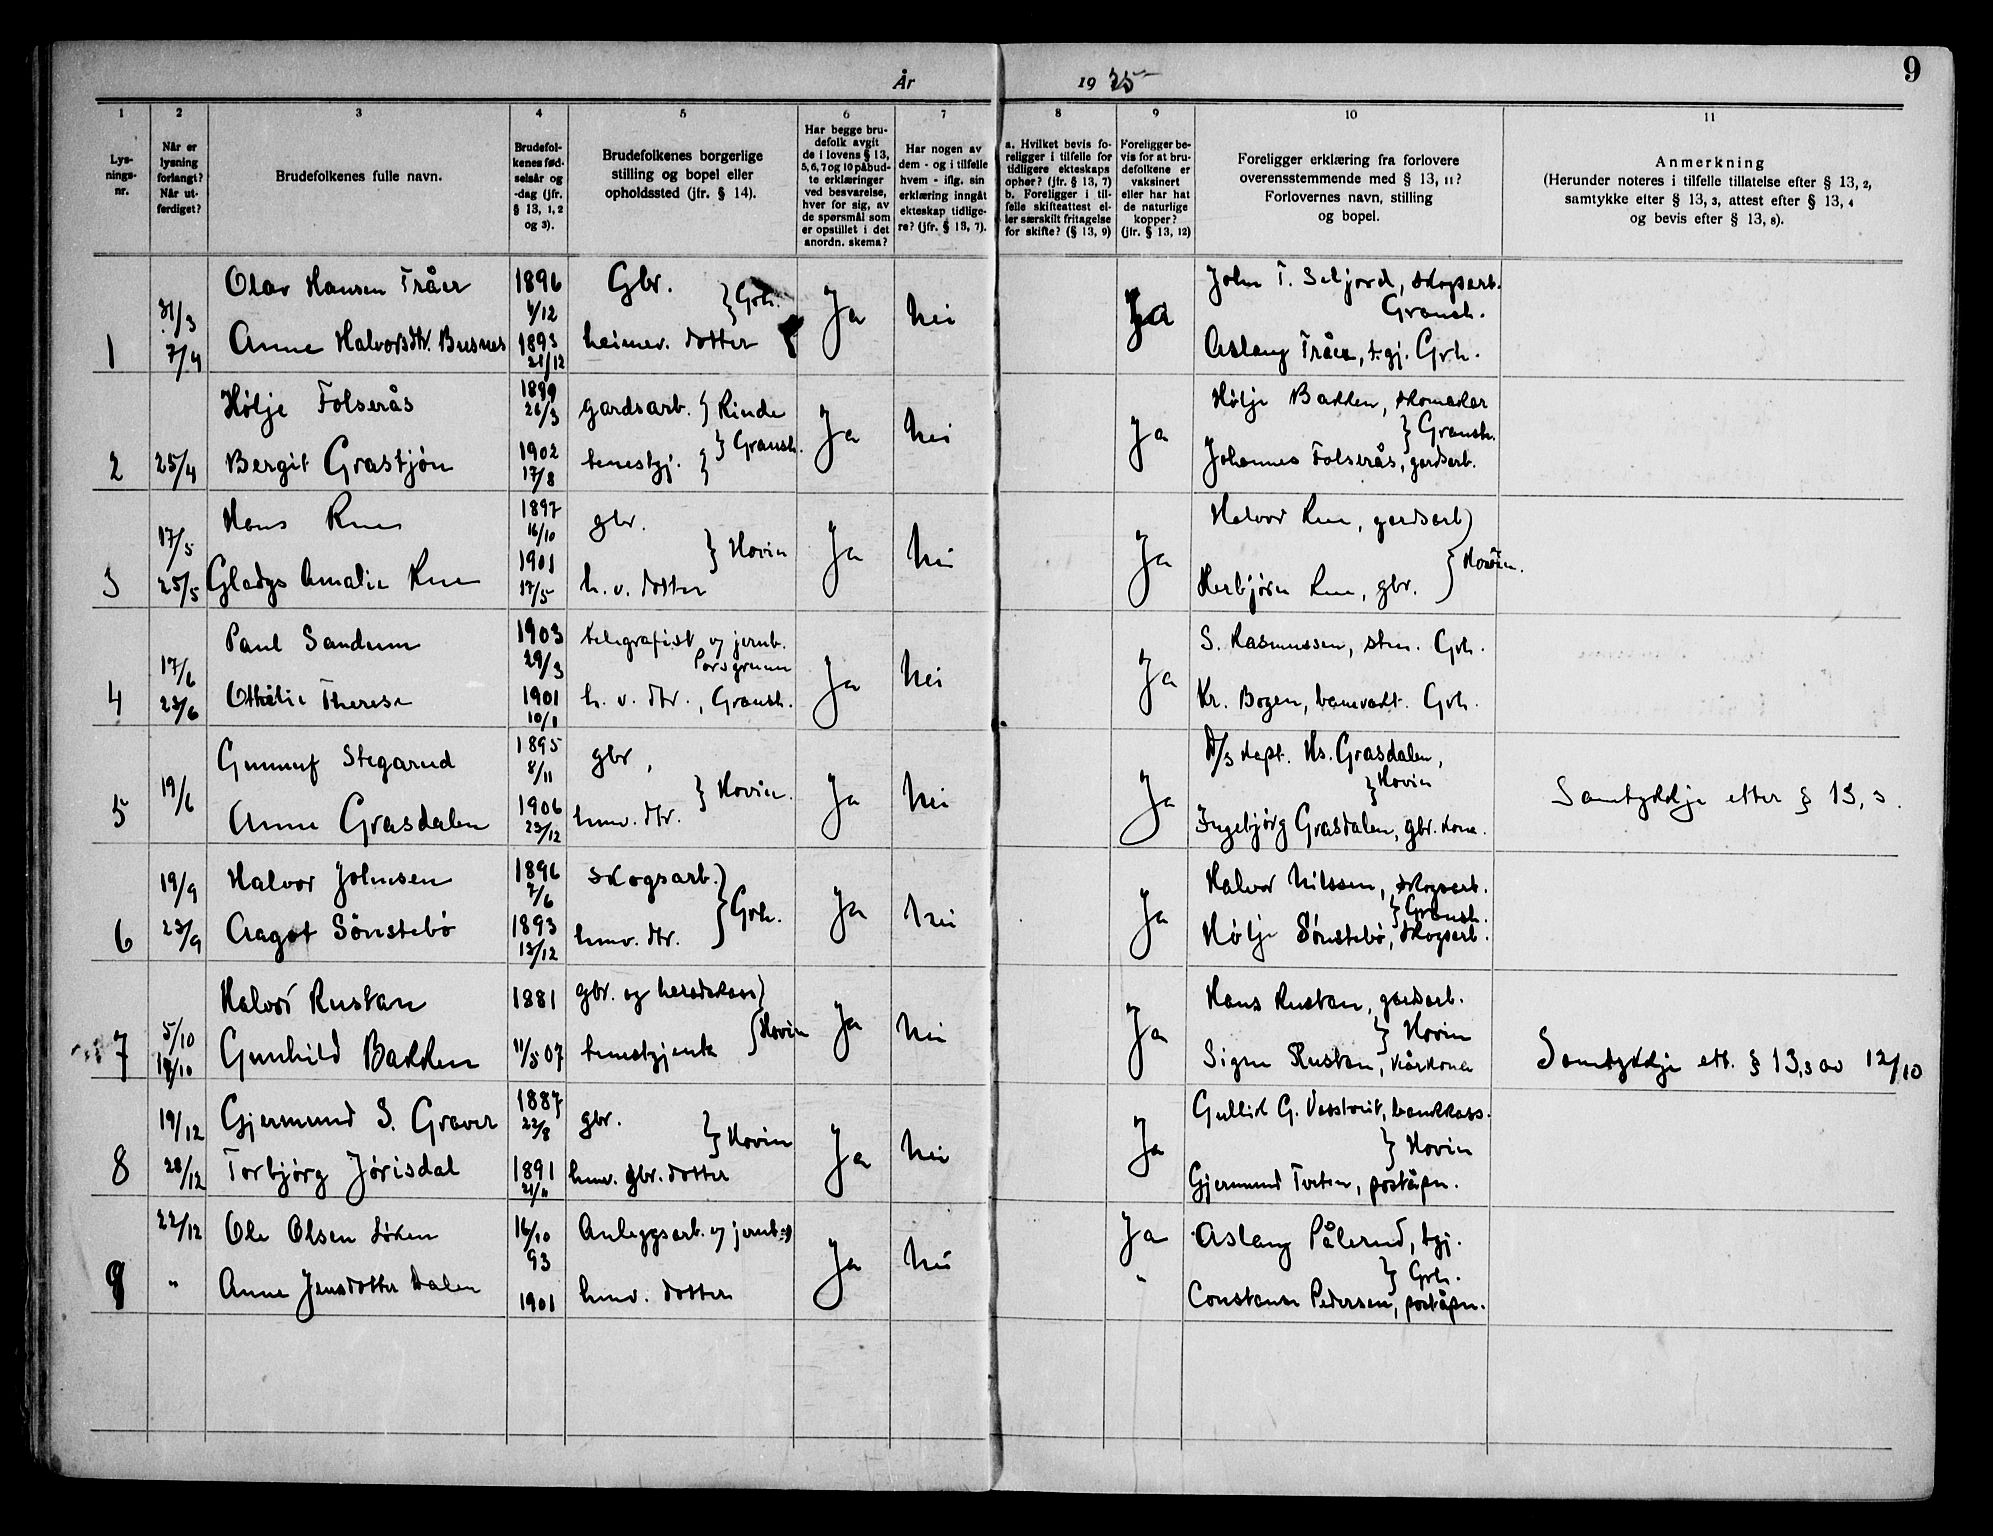 År
19 25
9
1
Lys-
nings-
nr.
2
Når er
lysning
forlangt?
Når ut-
ferdiget?
3
Brudefolkenes fulle navn.
4
Brudefol-
kenes fød-
selsår og
-dag (jfr.
§ 13, 1, 2
og 3).
5
Brudefolkenes borgerlige
stilling og bopel eller
opholdssted (jfr. § 14).
6
Har begge bru-
defolk avgit
de i lovens § 13,
5, 6, 7 og 10 påbud-
te erklæringer
ved besvarelse,
hver for sig, av
de spørsmål som
er opstillet i det
anordn. skema?
7
Har nogen av
dem - og i tilfelle
hvem - iflg. sin
erklæring inngåt
ekteskap tidlige-
re? (jfr. § 13, 7).
8
a. Hvilket bevis fo-
religger i tilfelle for
tidligere ekteskaps
ophør? (jfr. § 13, 7)
b. Foreligger i til-
felle skifteattest el-
ler særskilt fritagelse
for skifte? (§ 13, 9)
9
Foreligger be-
vis for at bru-
defolkene er
vaksinert
eller har hat
de naturlige
kopper?
(jfr. § 13, 12)
10
Foreligger erklæring fra forlovere
overensstemmende med § 13, 11?
Forlovernes navn, stilling
og bopel.
11
Anmerkning
(Herunder noteres i tilfelle tillatelse efter § 13, 2,
samtykke efter § 13, 3, attest efter § 13, 4
og bevis efter § 13, 8).
1
31/3
7/4
Olav Hansen Tråer
Anne Halvorsdtr. Busnes
1896
4/12
1893
21/12
Gbr.
} Grh.
heimev. dotter
Ja
Nei
Ja
John T. Seljord, skogsarb.
Gransh.
Aslaug Tråer, t.gj. Grh.
2
25/4
Hølje Folserås
Bergit Grastjøn
1899
26/3
1902
17/8
gardsarb. } Rinde
} Gransh.
tenestgj. }
Ja
Nei
Ja
Hølje Bakken, skomaker
} Gransh.
Johannes Folserås, gardsarb.
3
17/5
25/5
Hans Rue
Gladys Amalie Rue
1897
16/10
1901
17/5
gbr.
} Hovin
h. v. dotter
Ja
Nei
Ja
Halvor Rue, gardsarb.
} Hovin.
Herbjørn Rue, gbr.
4
17/6
23/6
Paul Sandum
Othilie Therese
1903
29/3
1901
10/1
telegrafist v/ jernb.
Porsgrunn
h. v. dtr., Gransh.
Ja
Nei
Ja
S. Rasmussen, stm. Grh.
Kr. Bogen, banevakt. Grh.
5
19/6
Gunnuf Stegarud
Anne Grasdalen
1895
8/11
1906
23/12
gbr,
} Hovin.
hmv. dtr.
Ja
Nei
Ja
D/S kapt. Hs. Grasdalen,
} Hovin
Ingebjørg Grasdalen, gbr. kone.
Samtykkje etter § 13, 3.
6
19/9
23/9
Halvor Johnsen
Aagot Sønstebø
1896
7/6
1893
13/12
skogsarb.
} Grh.
hmv. dtr.
Ja
Nei
Ja
Halvor Nilssen, skogsarb.
} Gransh.
Hølje Sønstebø, skogsarb.
7
5/10
19/10
Halvor Rustan
Gunhild Bakken
1881
11/5 07
gbr. og heradskass
} Hovin
tenestgjenta
Ja
Nei
Ja
Hans Rustan, gardsarb.
} Hovin
Signe Rustan, kårkona
Samtykkje ett. § 13,3 av 12/10
8
19/12
28/12
Gjermund S. Graver
Torbjørg Jørisdal
1887
22/8
1891
21/11
gbr.
} Hovin
hmv. gbr. dotter
Ja
Nei
Ja
Gullik G. Vesstveit, bankkass.
} Hovin
Gjermund Tveten, poståpn.
9
22/12
"
Ole Olsen Løken
Anne Jensdotter Dalen
16/10
93
1901
Anleggsarb. v/ jernb.
hmv. dotter
Ja
Nei
Ja
"
Aslaug Pålerud, tgj.
} Grh.
Constanse Pedersen, poståpn.